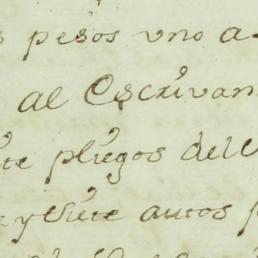 pesos uno a
al Escrivan
te pliegos del
y siete autos